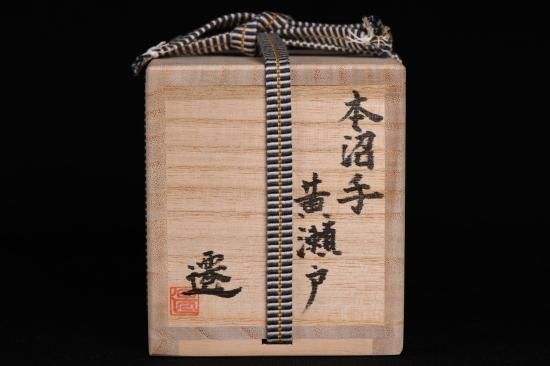 本沼手
黄瀬戸
遷